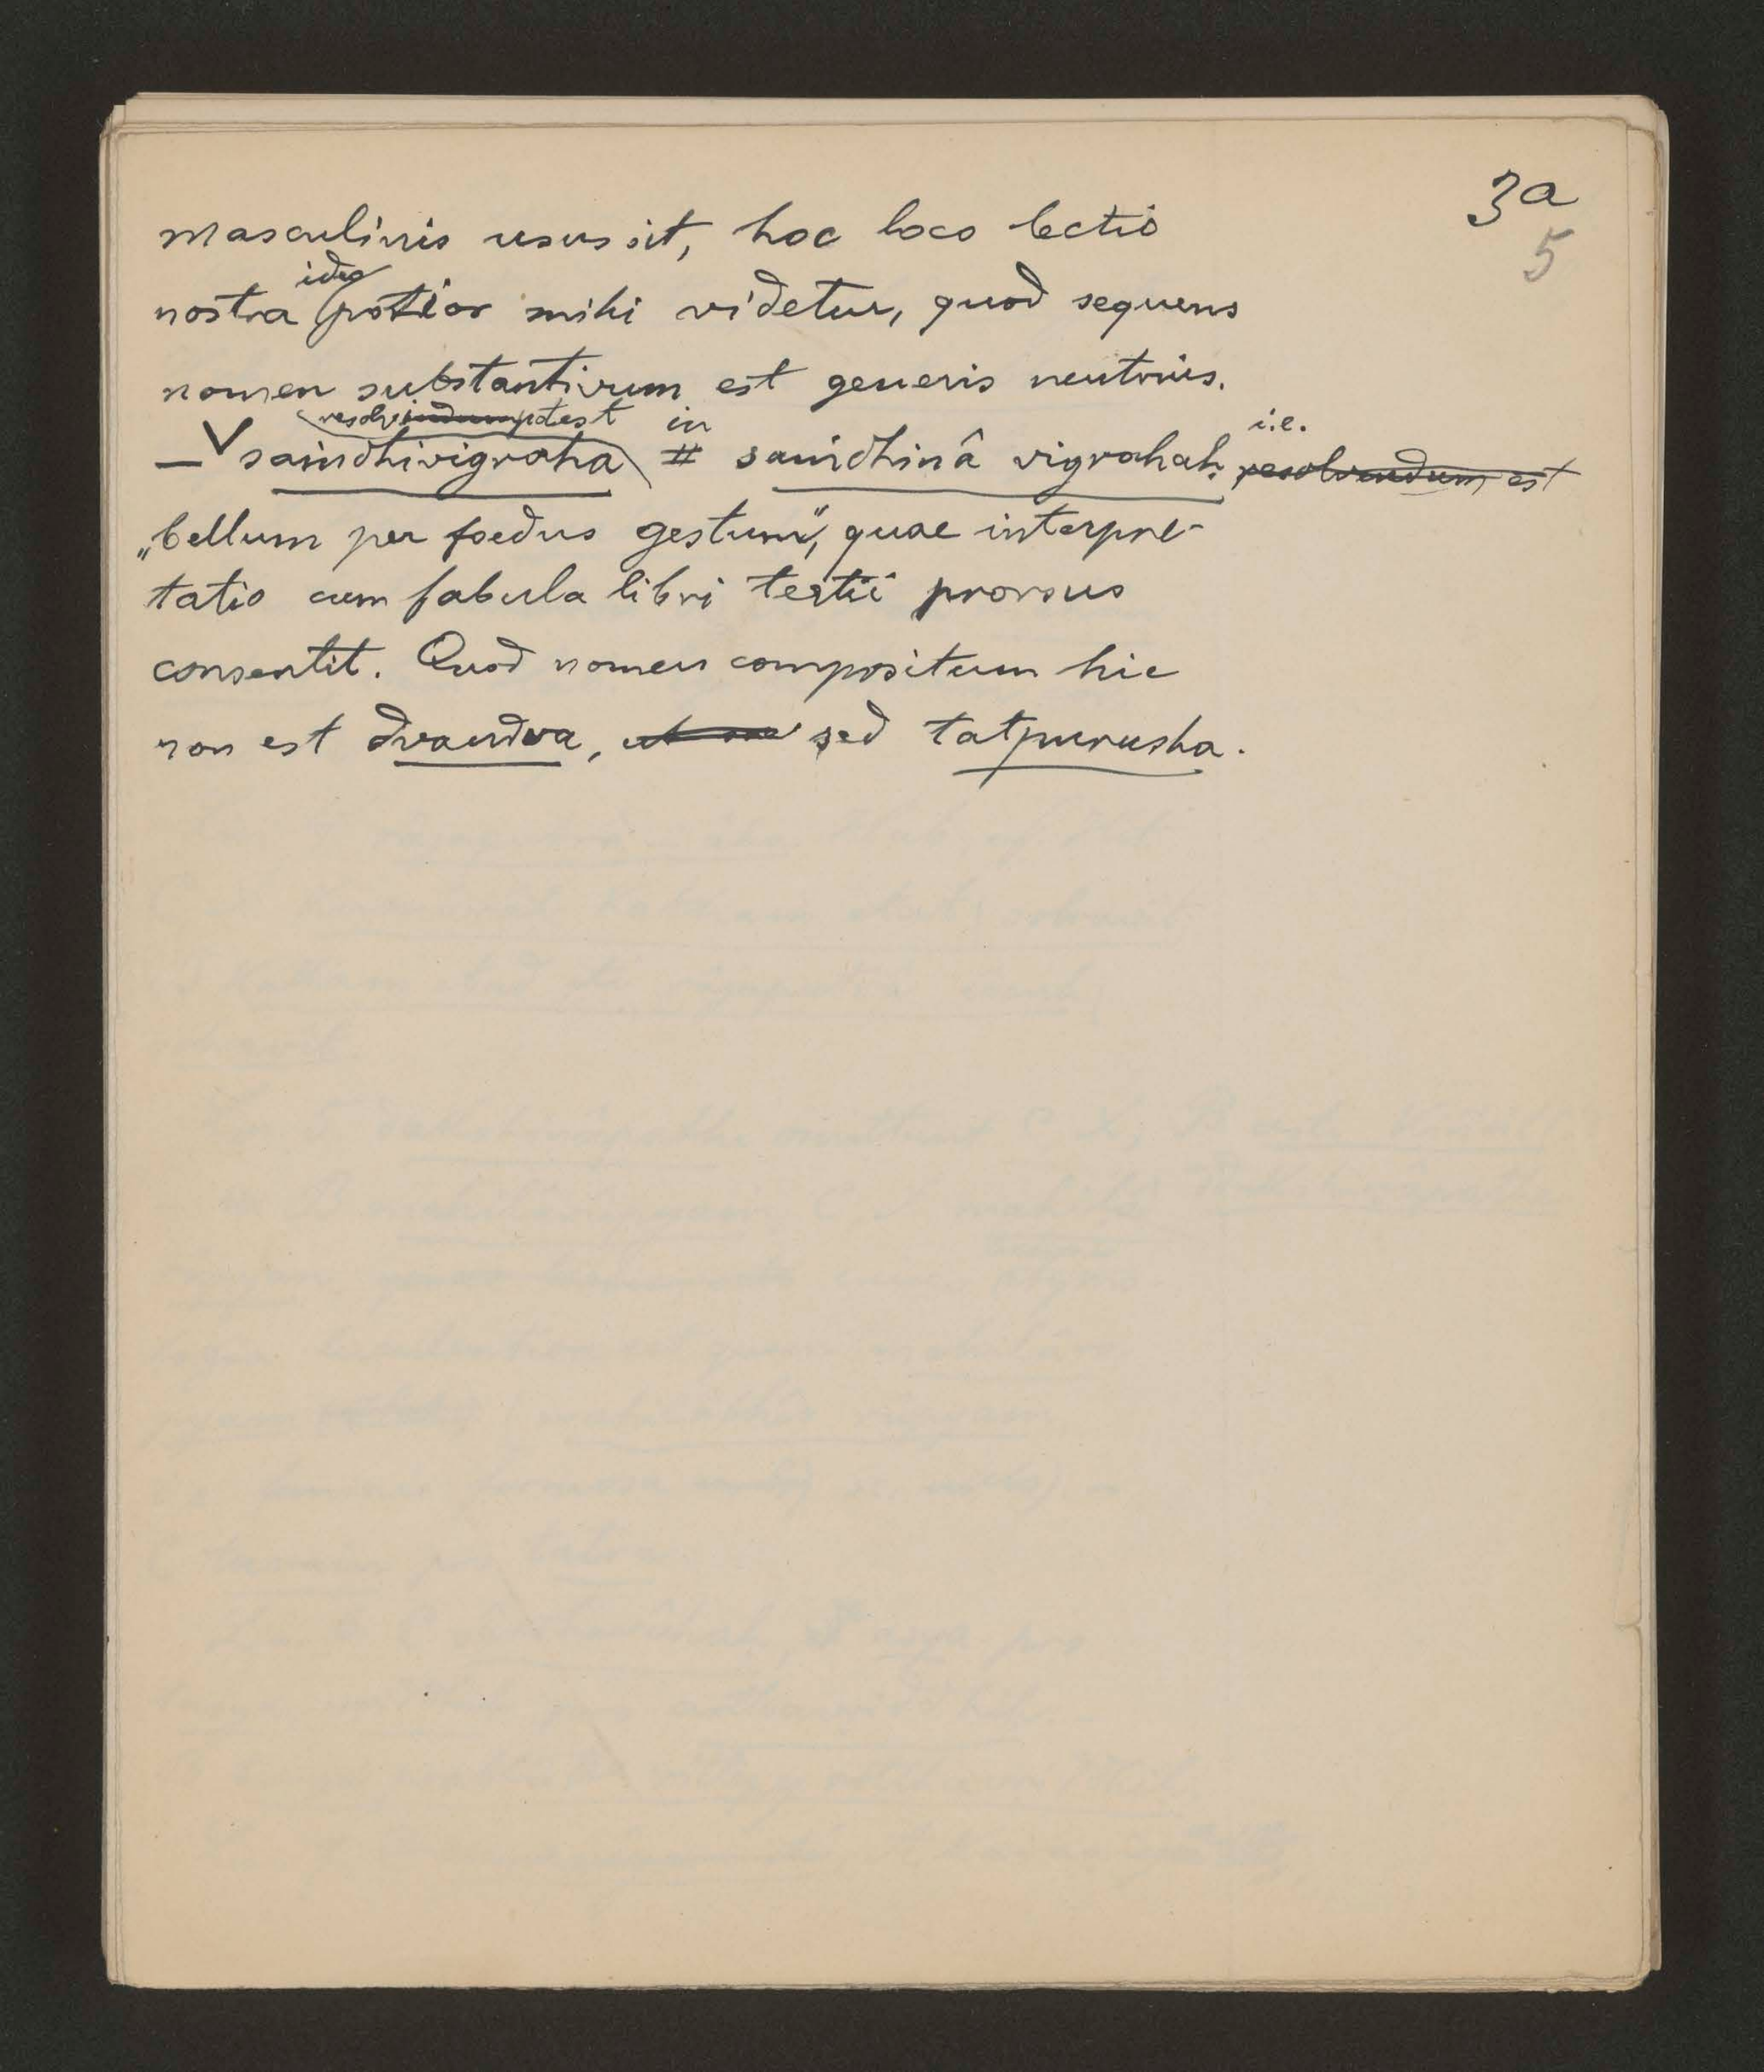 3a
5
masculinis usus sit, hoc loco lectio
ideo
nostra potior mihi videtur, quod sequens
nomen substantivum est generis neutrius.
resolvi potest in i.e.
— saṁdhivigraha # saṁdhinâ vigrahaḥ resolvendum est
„bellum per foedus gestum", quae interpre-
tatio cum fabula libri tertii prorsus
consentit. Quod nomen compositum hic
non est dvandva, sed tatpurusha.